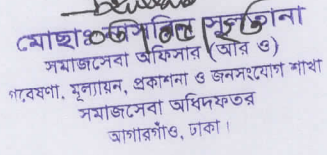 মোছাঃ সুলতানা
সমাজসেবা অফিসার (আর ও)
গবেষণা, মূল্যায়ন, প্রকাশনা ও জনসংযোগ শাখা
সমাজসেবা অধিদফতর
আগারগাঁও, ঢাকা।